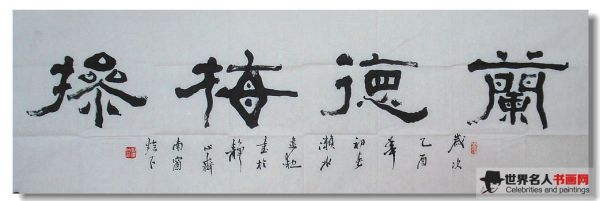 蘭德梅操
歲次
乙酉
年
初春
瀨水
書於
靜
心齋
南窗
燈下
世界名人书画网
Celebrities and paintings